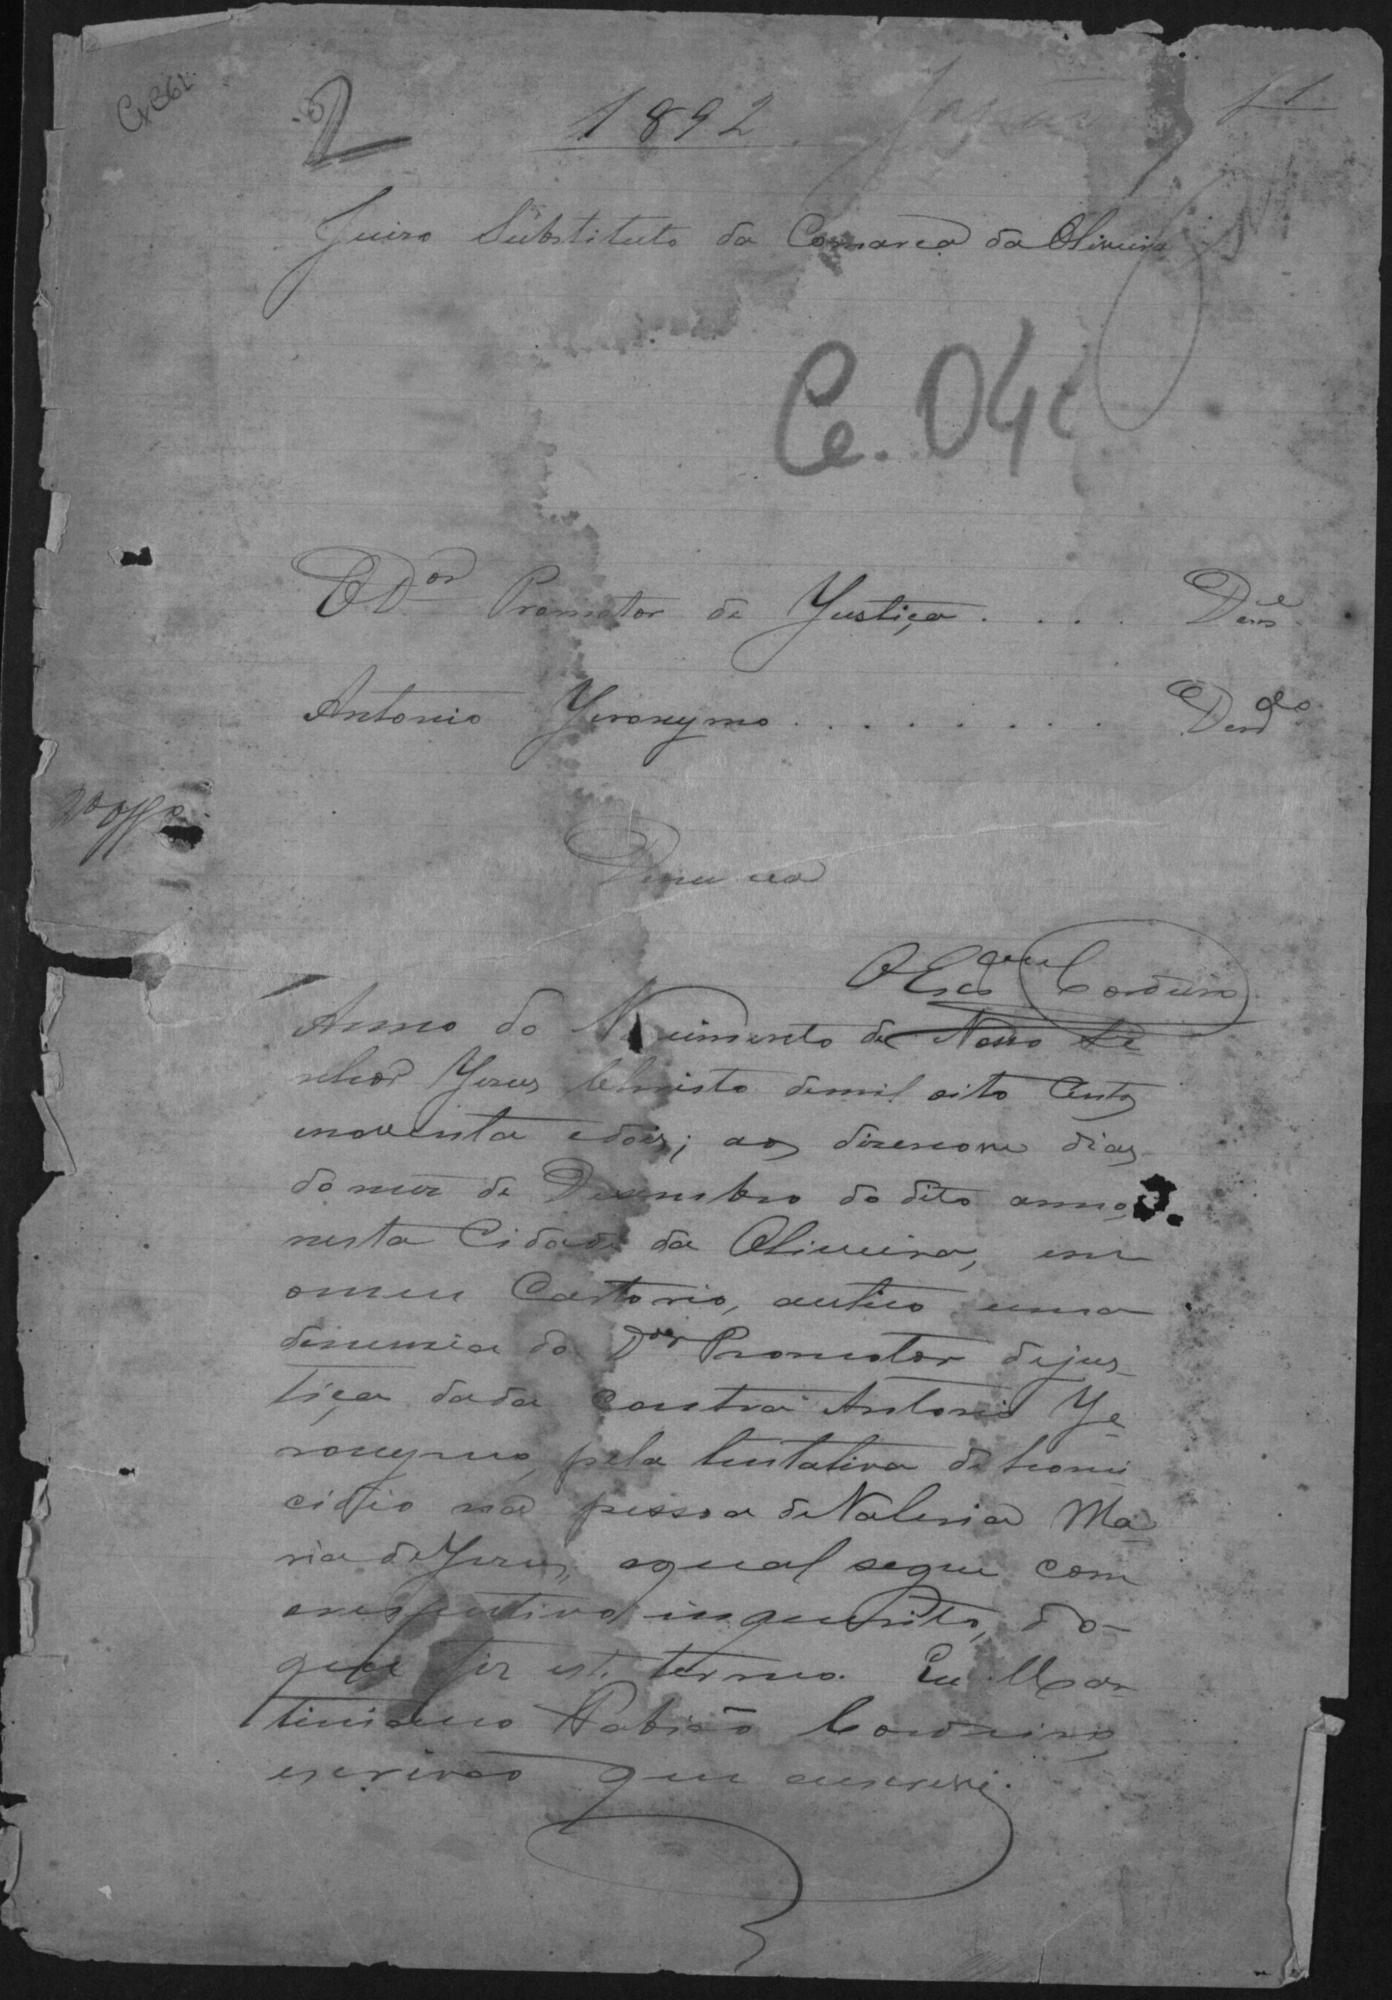 2
1892
Juizo Substituto da Comarca da Oliveira
Ce. 04
O Dor Promotor de Justiça . . . . Dene
Antonio Yeronymo . . . . . . . Dendo
Denuncia
O Escvam Cordeiro
Anno do Nascimento de Nosso Se
nhor Yesus Christo demil oito Centos
enoventa edois; aos dizenove dias
do mez de Dezembro do dito anno,
nesta Cidade da Oliveira, em
omeu Cartorio, autuo uma
denuncia do Dor Promotor dejus_
tiça dada contra Antonio Ye
ronymo, pela tentativa de homi
cidio na pessoa de Valeria Ma
ria de Yesus, aqual segue com
orespectivo inquerito, do-
que fiz este termo. Eu Mar
tiniano Cordeiro,
escrivão que escrevi.